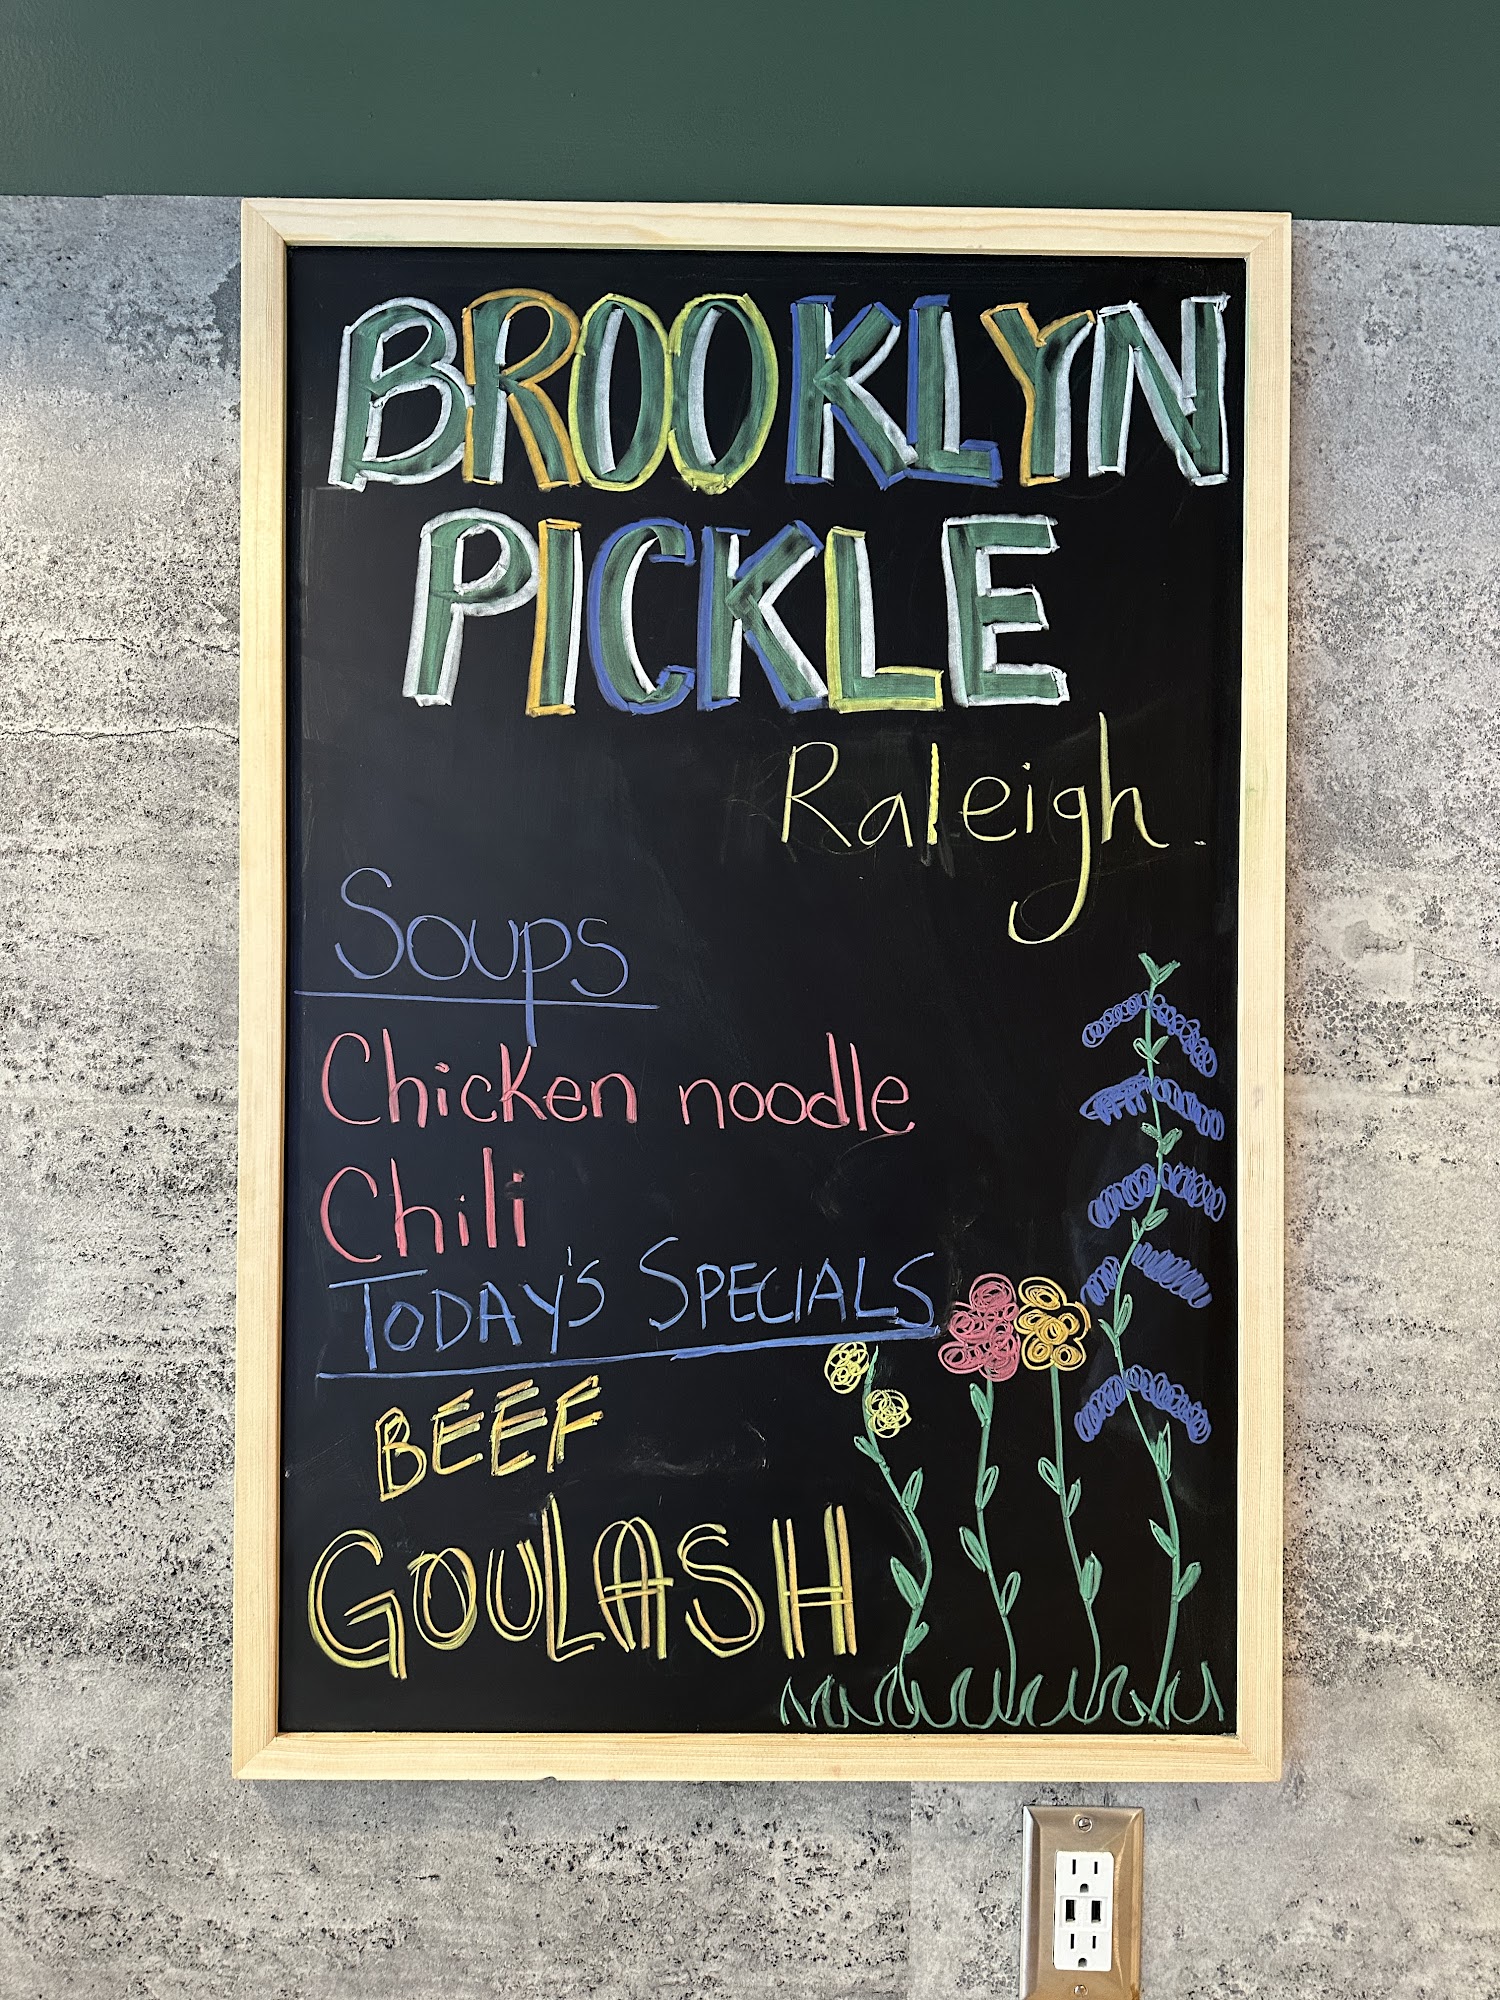 BROOKLYN
PICKLE
Raleigh.
Soups
Chicken noodle
Chili
TODAY'S SPECIALS
BEEF
GOULASH